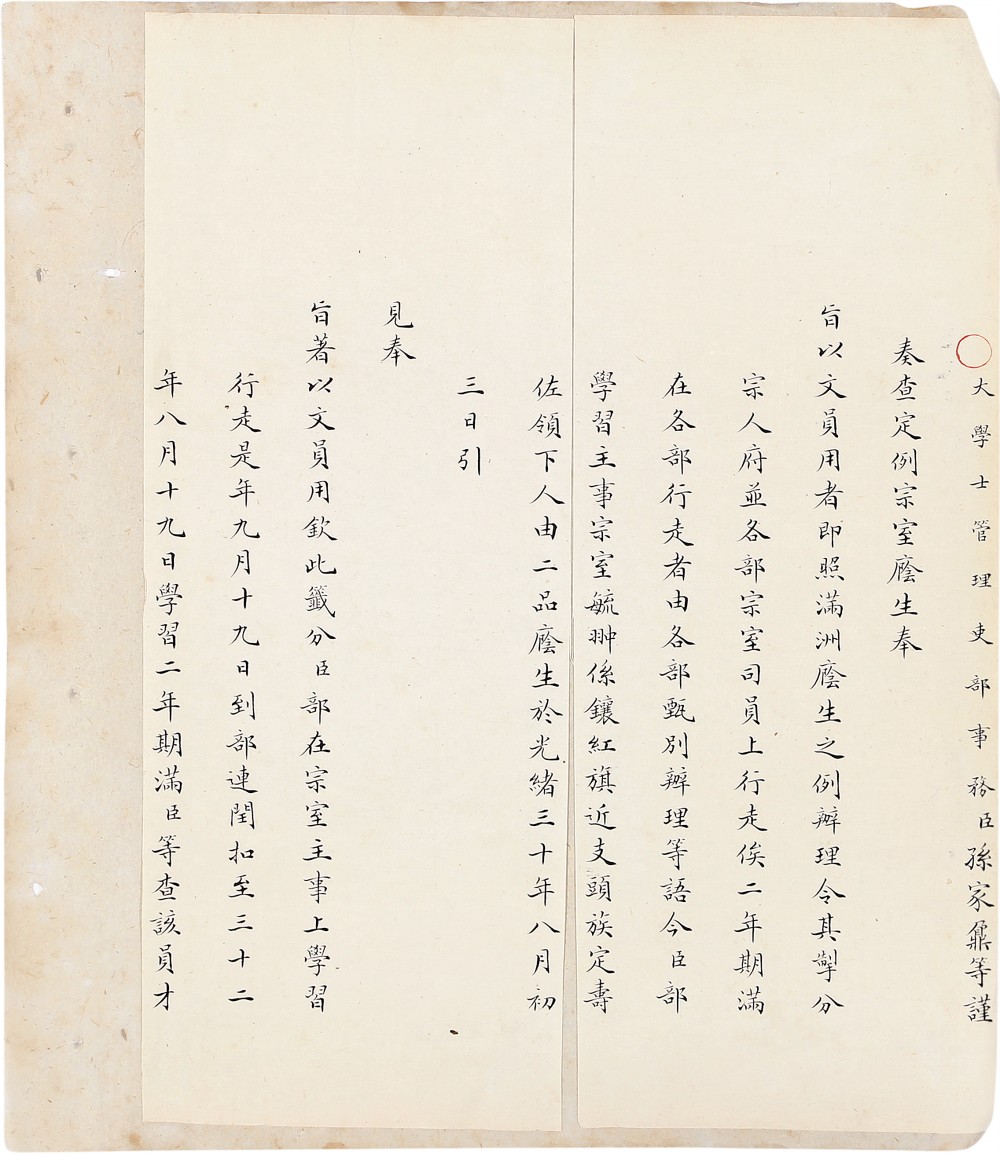 大學士管理吏部事務臣孫家鼐等謹
奏查定例宗室廕生奉
旨以文員用者即照滿洲廕生之例辦理令其掣分
宗人府並各部宗室司員上行走俟二年期滿
在各部行走者由各部甄別辦理等語今臣部
學習主事宗室毓翀係鑲紅旗近支頭族定壽
佐領下人由二品廕生於光緒三十年八月初
三日引
見奉
旨著以文員用欽此籤分臣部在宗室主事上學習
行走是年九月十九日到部連閏扣至三十二
年八月十九日學習二年期滿臣等查該員才